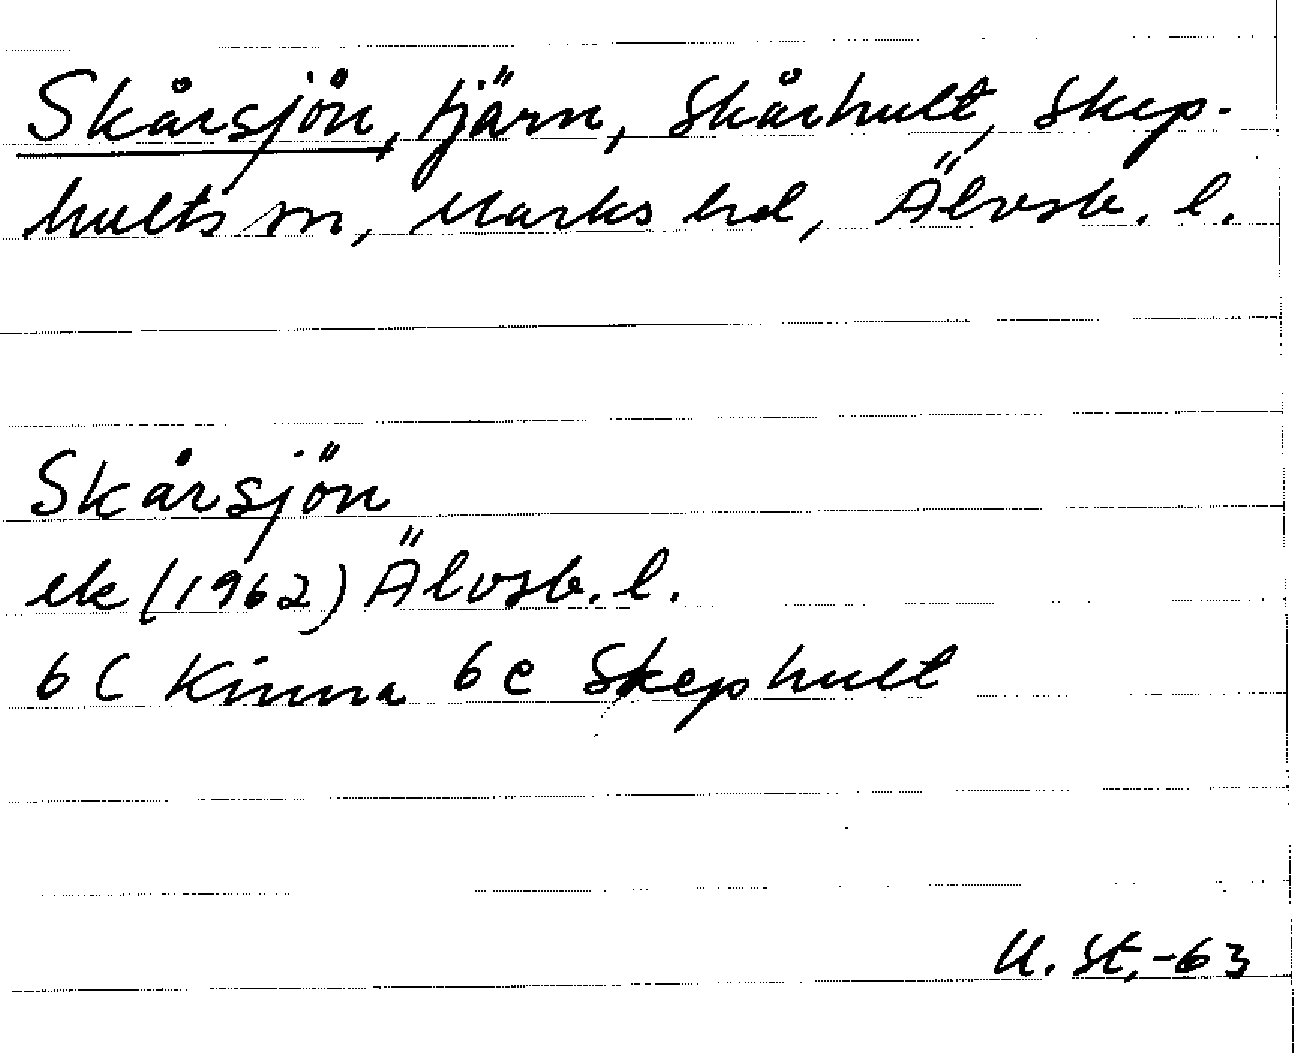 Skårsjön, tjärn, Skårhult, Skep-
hults sn, Marks hd, Älvsb. l.
Skårsjön
ek (1962) Älvsb. l.
6 C Kinna 6 e Skephult
U. St, -63